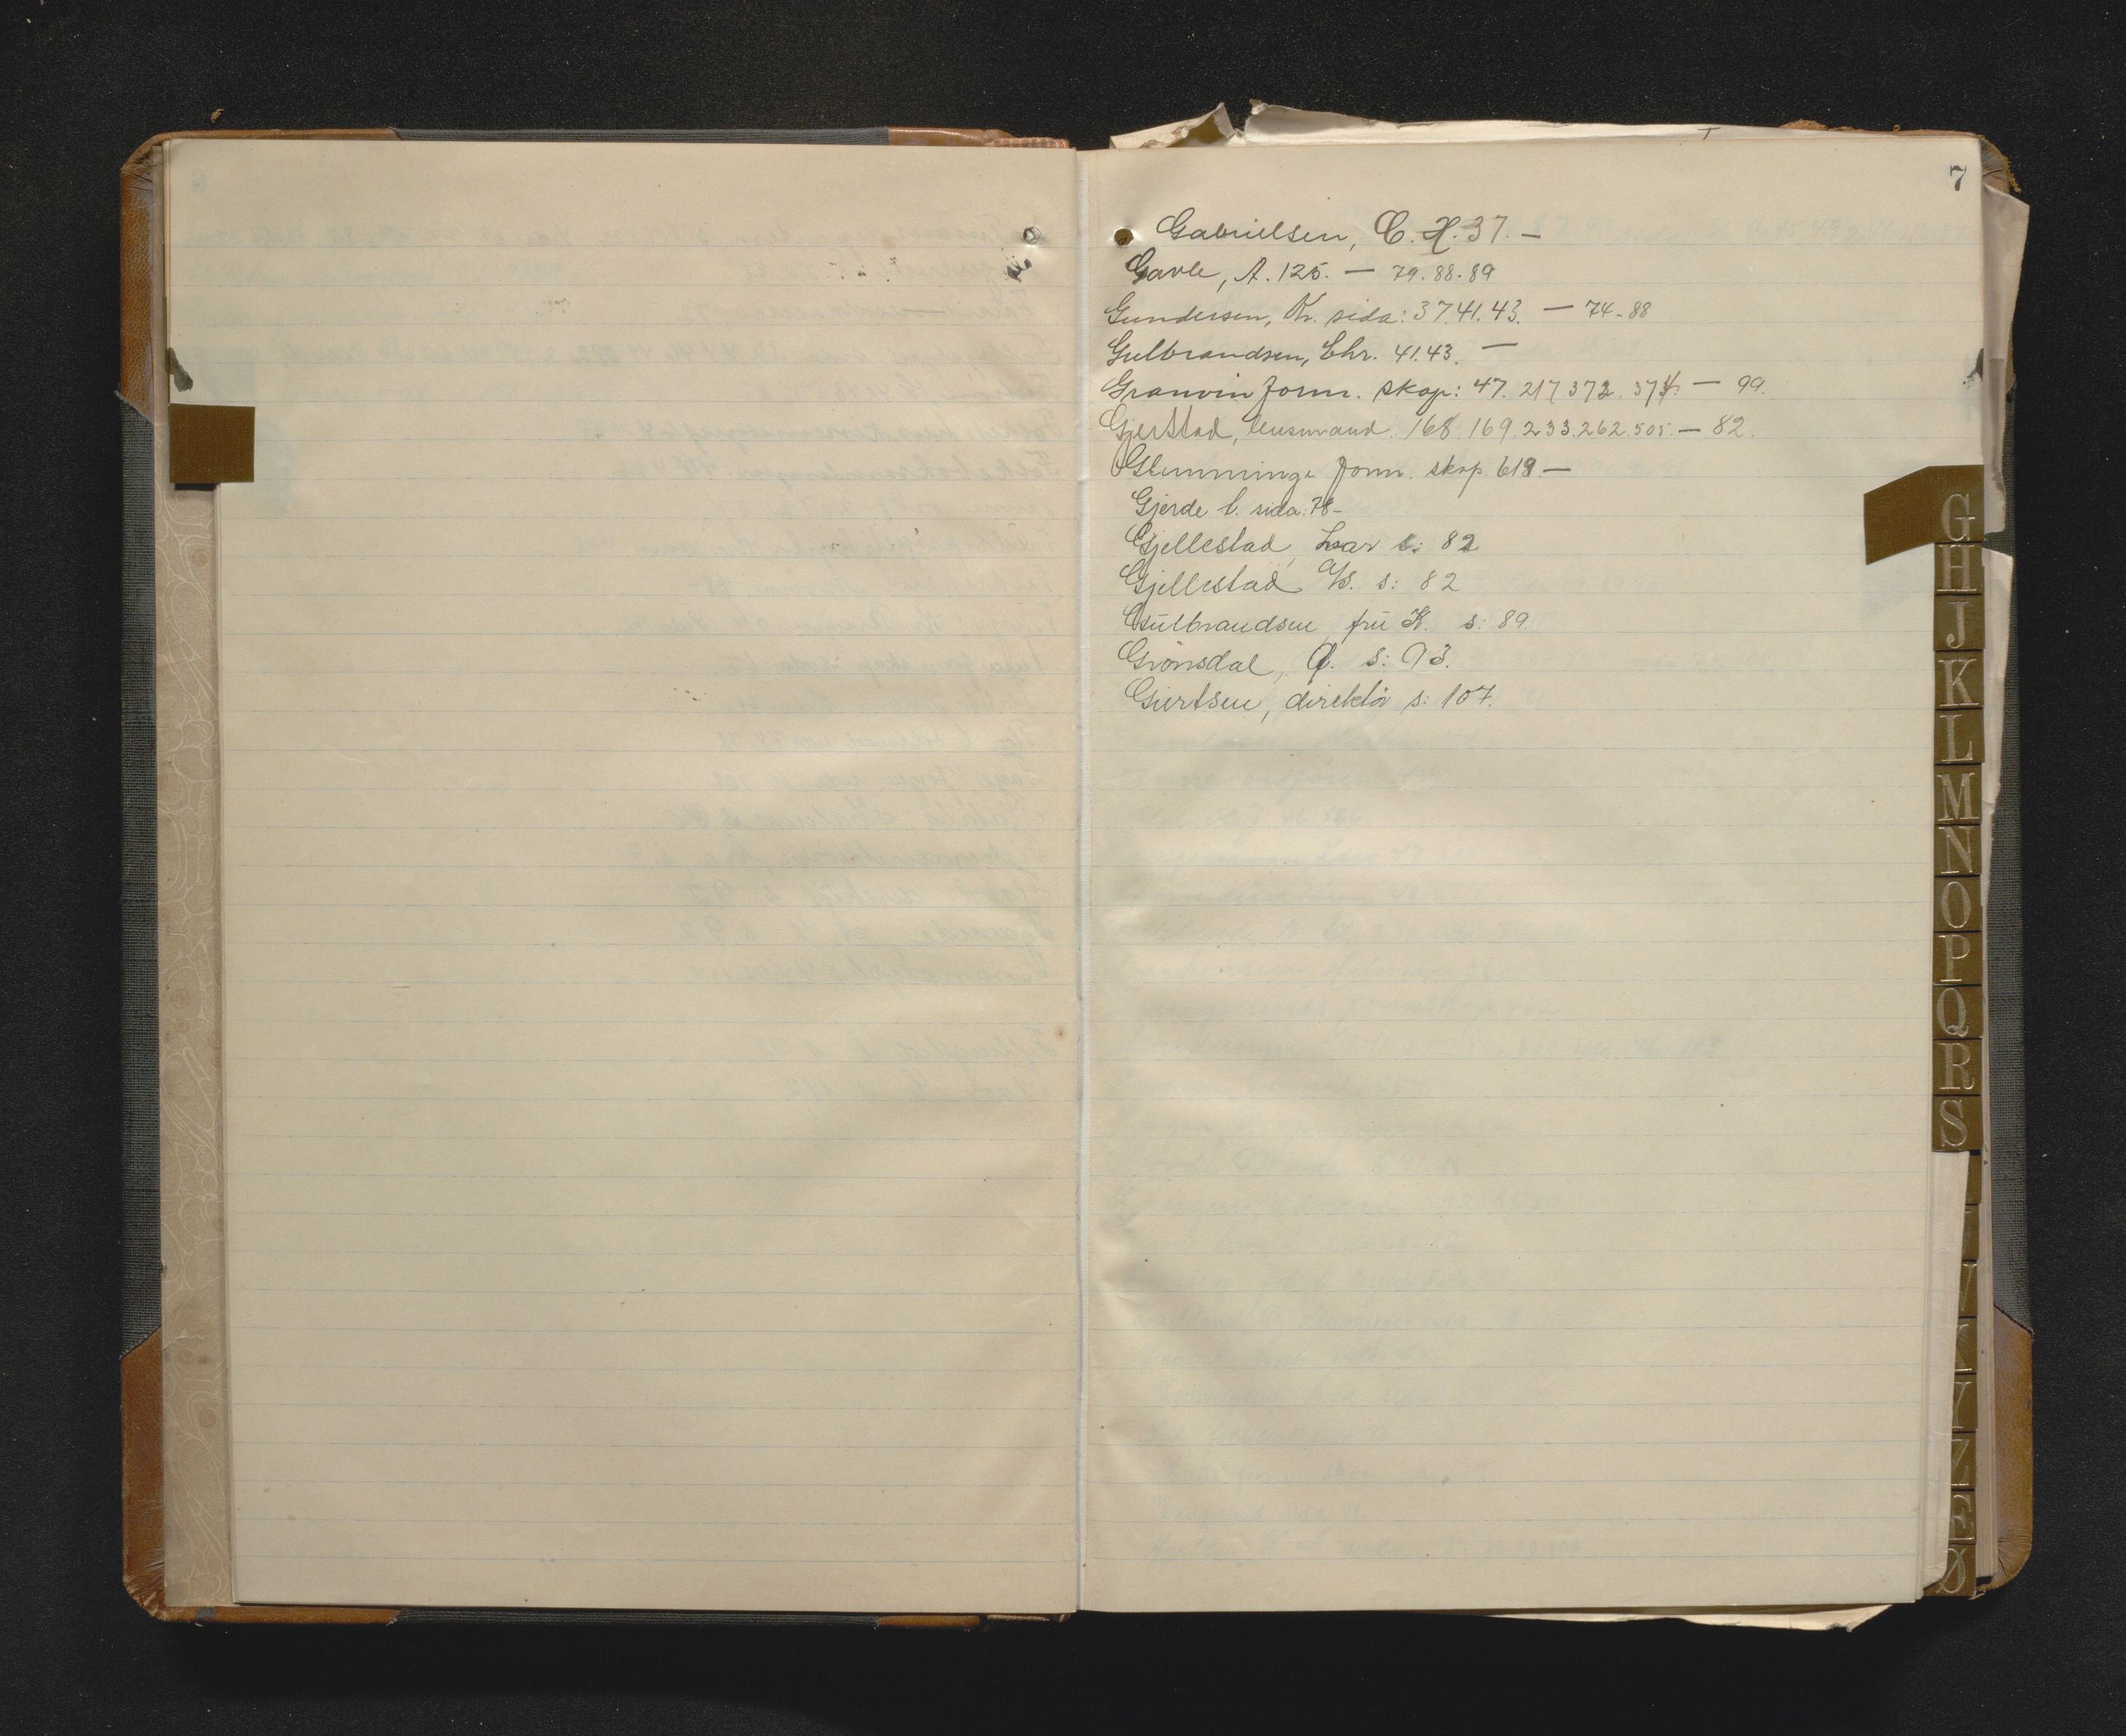 7
Gabrielsen, C. H. 37. —
Gavle, A. 125. — 79. 88. 89
Gundersen, Kr. sida: 37. 41. 43. — 74. 88
Gulbrandsen, Chr. 41. 43. —
Granvin form. skap: 47. 217. 372. 374. — 99.
Gjerstad, lensmand. 168. 169. 233. 262. 505. — 82.
Glemminge form. skap. 618 —
Gjerde l. sida: 78 —
Gjellestad, Ivar s: 82
Gjellestad A/S. s: 82
Gulbrandsen, fru K. s: 89.
Grönsdal, O. s: 93.
Giertsen, direktör s: 107.
G
H
J
K
L
M
N
O
P
Q
R
S
V
X
Y
Z
Æ
Ø